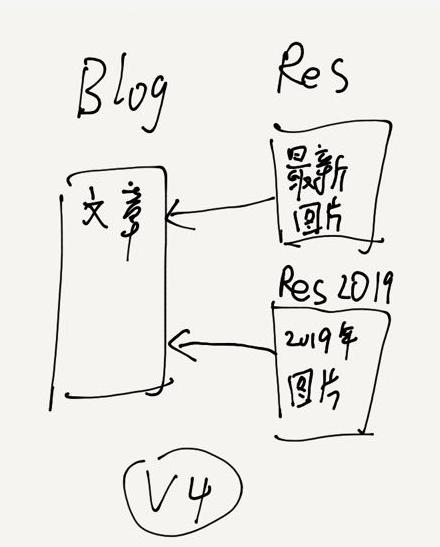 Blog
Res
文章
最新
图片
Res 2019
2019年
图片
V4